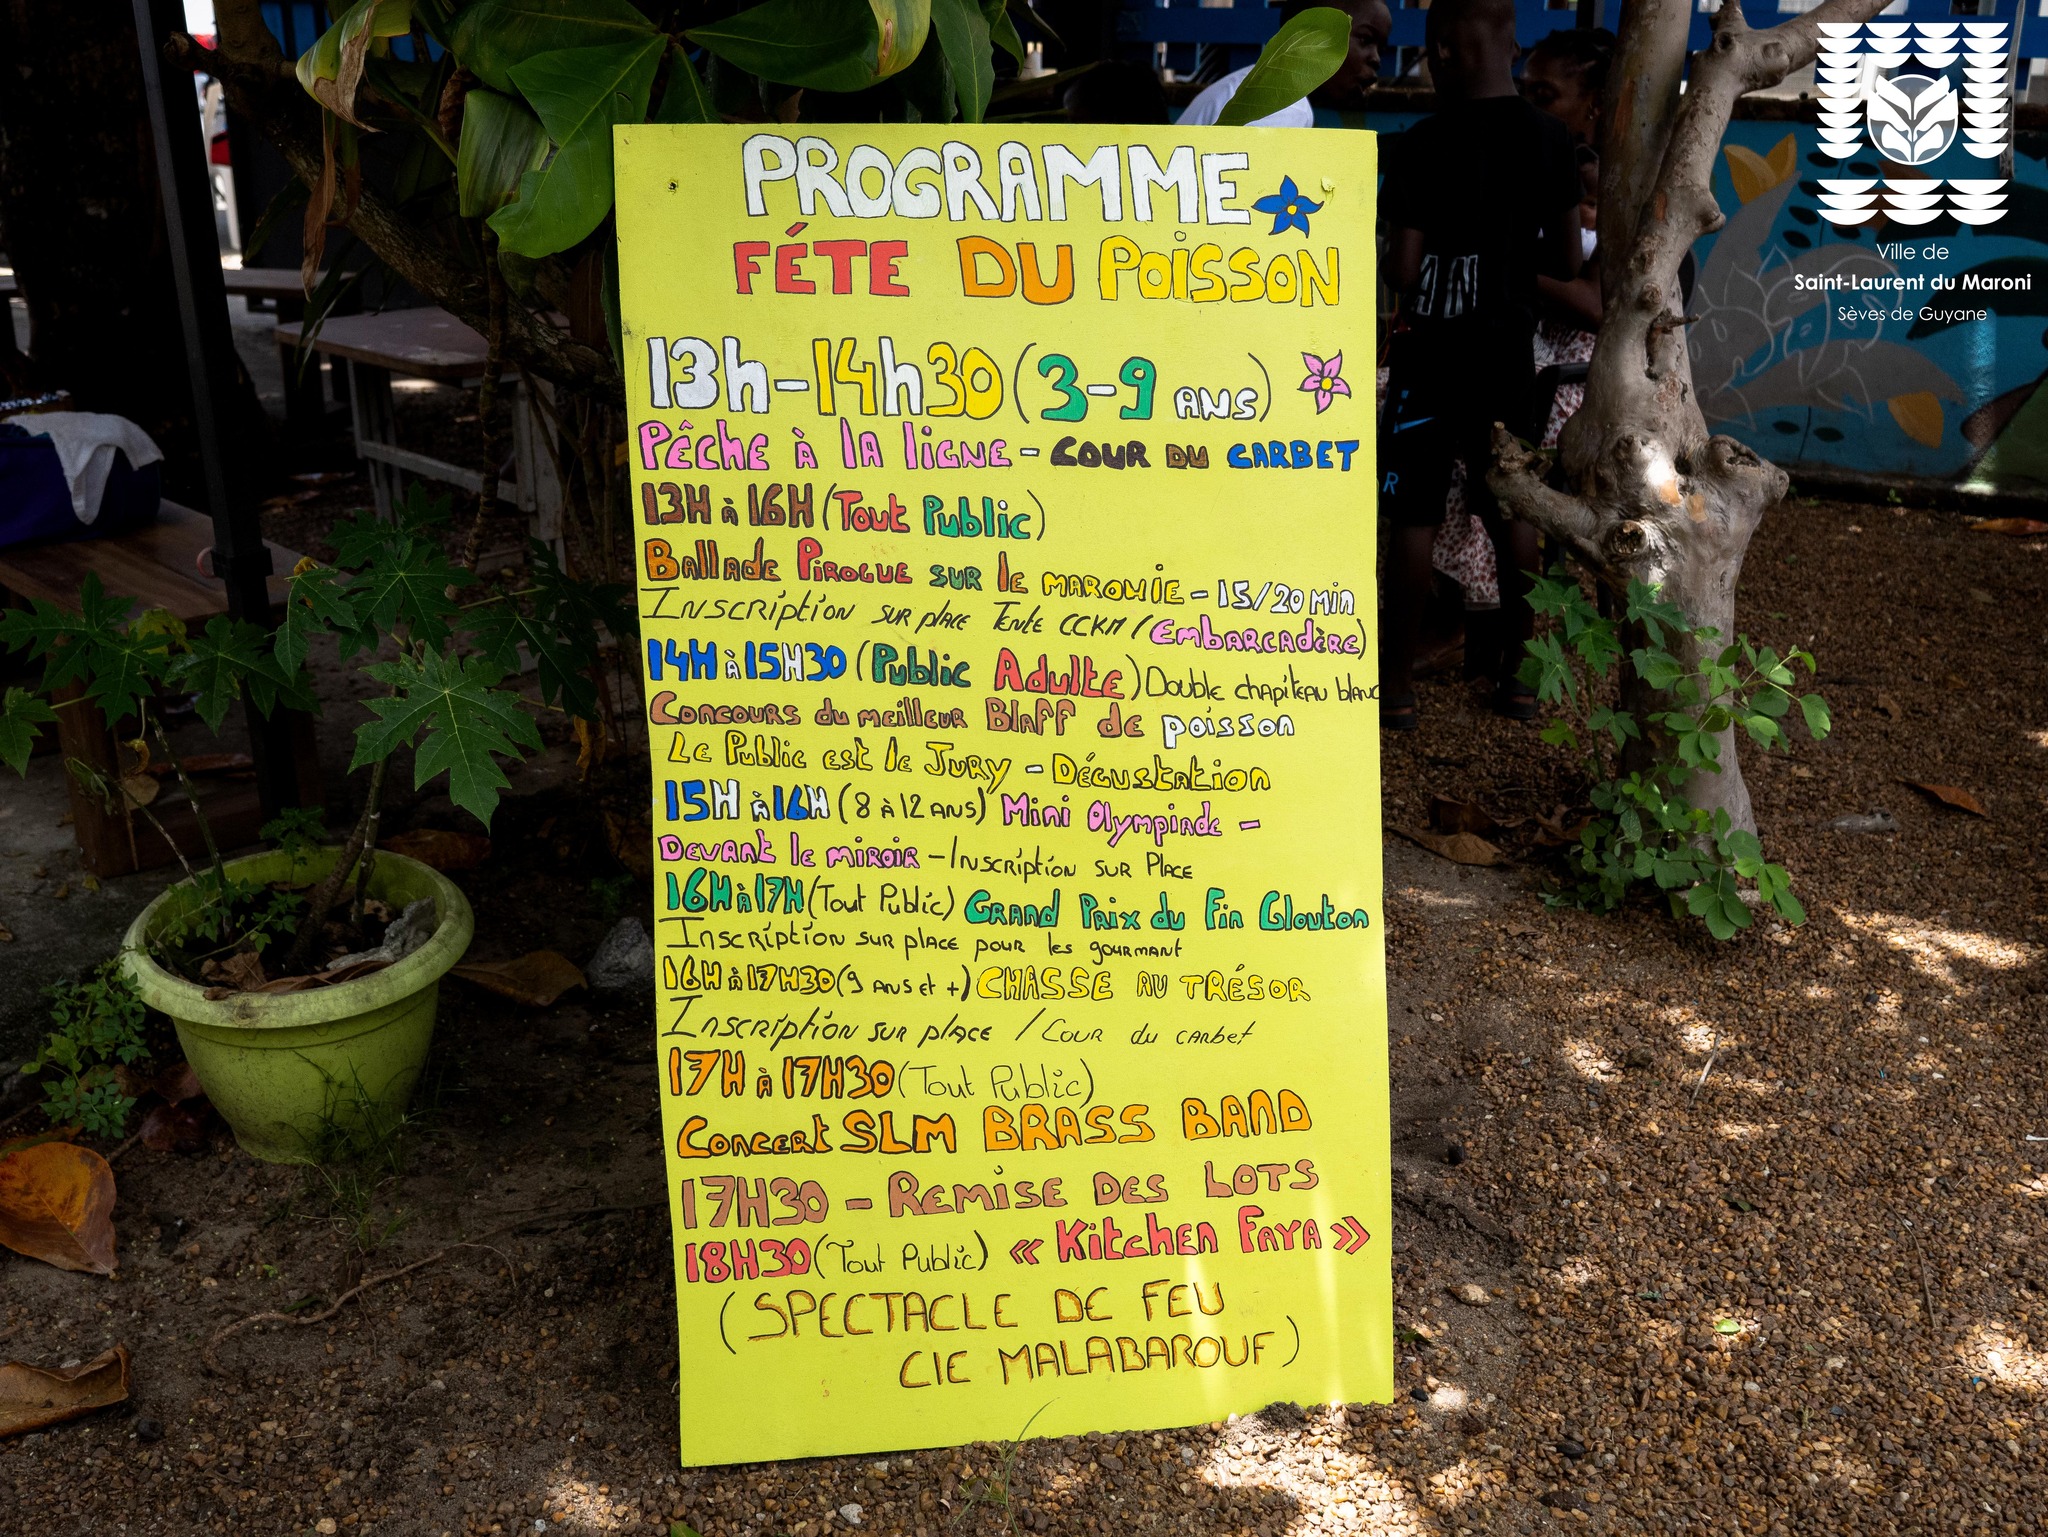 PROGRAMME
FÉTE DU POISSON
13h-14h30 (3-9 ANS)
Pêche à la ligne - COUR DU CARBET
13H à 16H (Tout Public)
Ballade Pirogue sur le MARONIE - 15/20 min
Inscription sur place Tente CCKM / (Embarcadère)
14H à 15H30 (Public Adulte) Double chapiteau blanc
Concours du meilleur Blaff de poisson
Le Public est le Jury - Dégustation
15H à 16H (8 à 12 ANS) Mini Olympiade -
Devant le miroir - Inscription sur Place
16H à 17H (Tout Public) Grand Paix du Fin Glouton
Inscription sur place pour les gourmant
16H à 17H30 (9 ans et +) CHASSE AU TRÉSOR
Inscription sur place / Cour du carbet
17H à 17H30 (Tout Public)
Concert SLM BRASS BAND
17H30 - REMISE DES LOTS
18H30 (Tout Public) « Kitchen Faya »
(SPECTACLE DE FEU
CIE MALABAROUF)
Ville de
Saint-Laurent du Maroni
Sèves de Guyane